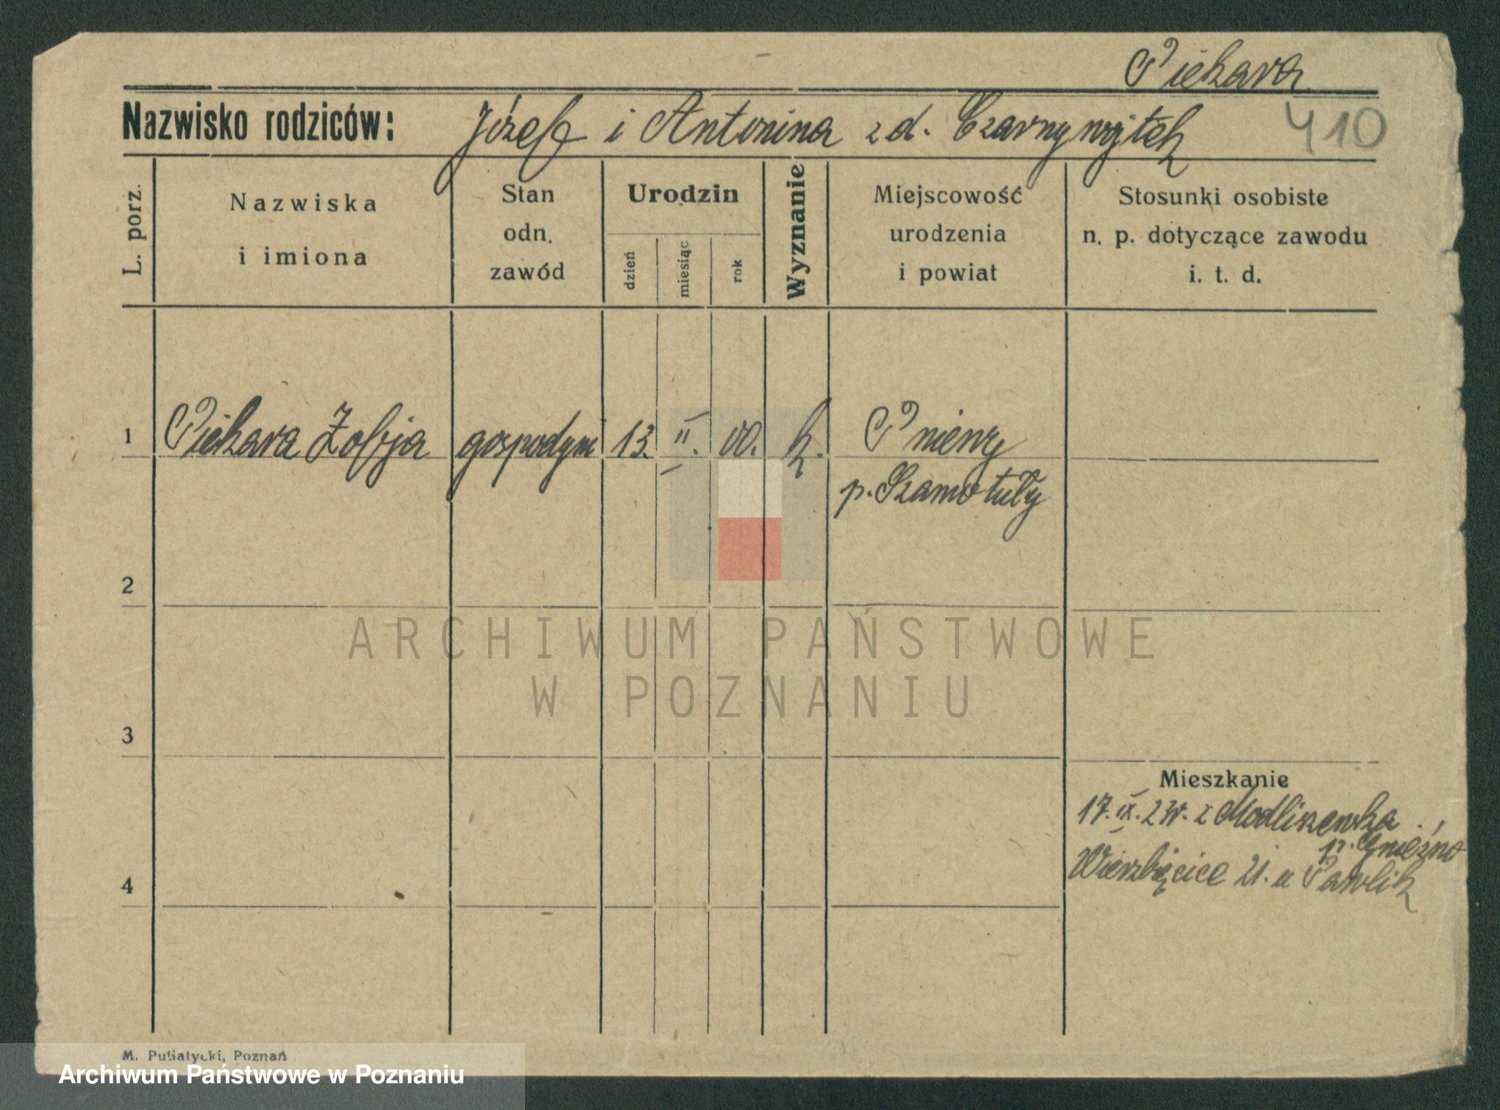 Piekara
Nazwisko rodziców: Józef i Antonina z d. Czarnywojtek
410
L. porz.
Nazwiska
i imiona
Stan
odn.
zawód
Urodzin
dzień
miesiąc
rok
Wyznanie
Miejscowość
urodzenia
i powiat
Stosunki osobiste
n. p. dotyczące zawodu
i. t. d.
1 Piekara Zofja gospodyni 13. II. 00. k. Pniewy
p. Szamotuły
2
3
4
Mieszkanie
17. IX. 23r. z Modliszewka
p. Gniezno
Wierzbięcice 21. u Pawlik
ARCHIWUM PAŃSTWOWE
W POZNANIU
M. Putiatycki, Poznań
Archiwum Państwowe w Poznaniu